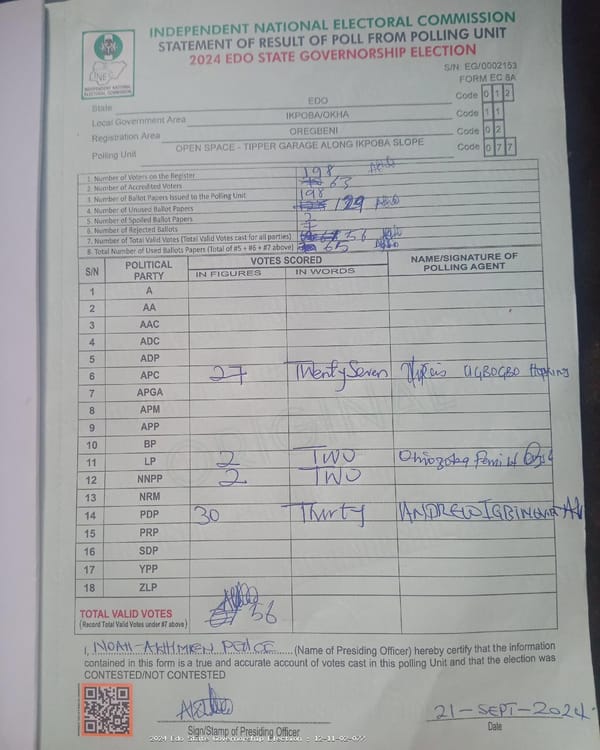 INDEPENDENT NATIONAL ELECTORAL COMMISSION
STATEMENT OF RESULT OF POLL FROM POLLING UNIT
2024 EDO STATE GOVERNORSHIP ELECTION
INEC
INDEPENDENT NATIONAL
ELECTORAL COMMISSION
S/N: EG/0002153
FORM EC 8A
State EDO Code 0 1 2
Local Government Area IKPOBA/OKHA Code 1 1
Registration Area OREGBENI Code 0 2
Polling Unit OPEN SPACE - TIPPER GARAGE ALONG IKPOBA SLOPE Code 0 7 7
1. Number of Voters on the Register 198
2. Number of Accredited Voters 63
3. Number of Ballot Papers Issued to the Polling Unit 198
4. Number of Unused Ballot Papers 129
5. Number of Spoiled Ballot Papers
6. Number of Rejected Ballots
7. Number of Total Valid Votes (Total Valid Votes cast for all parties) 56
8. Total Number of Used Ballots Papers (Total of #5 + #6 + #7 above) 65
S/N POLITICAL PARTY VOTES SCORED NAME/SIGNATURE OF POLLING AGENT
IN FIGURES IN WORDS
1 A
2 AA
3 AAC
4 ADC
5 ADP
6 APC 27 Twenty Seven UGBOGBO Hopkins
7 APGA
8 APM
9 APP
10 BP
11 LP 2 TWO
12 NNPP 2 TWO
13 NRM
14 PDP 30 Thirty ANDREW
15 PRP
16 SDP
17 YPP
18 ZLP
ORIGINAL
TOTAL VALID VOTES 56
(Record Total Valid Votes under #7 above)
I, NOAH-AKHMIEN PEACE (Name of Presiding Officer) hereby certify that the information
contained in this form is a true and accurate account of votes cast in this polling Unit and that the election was
CONTESTED/NOT CONTESTED
21-SEPT-2024
Sign/Stamp of Presiding Officer Date
2024 Edo State Governorship Election : 12-11-02-077